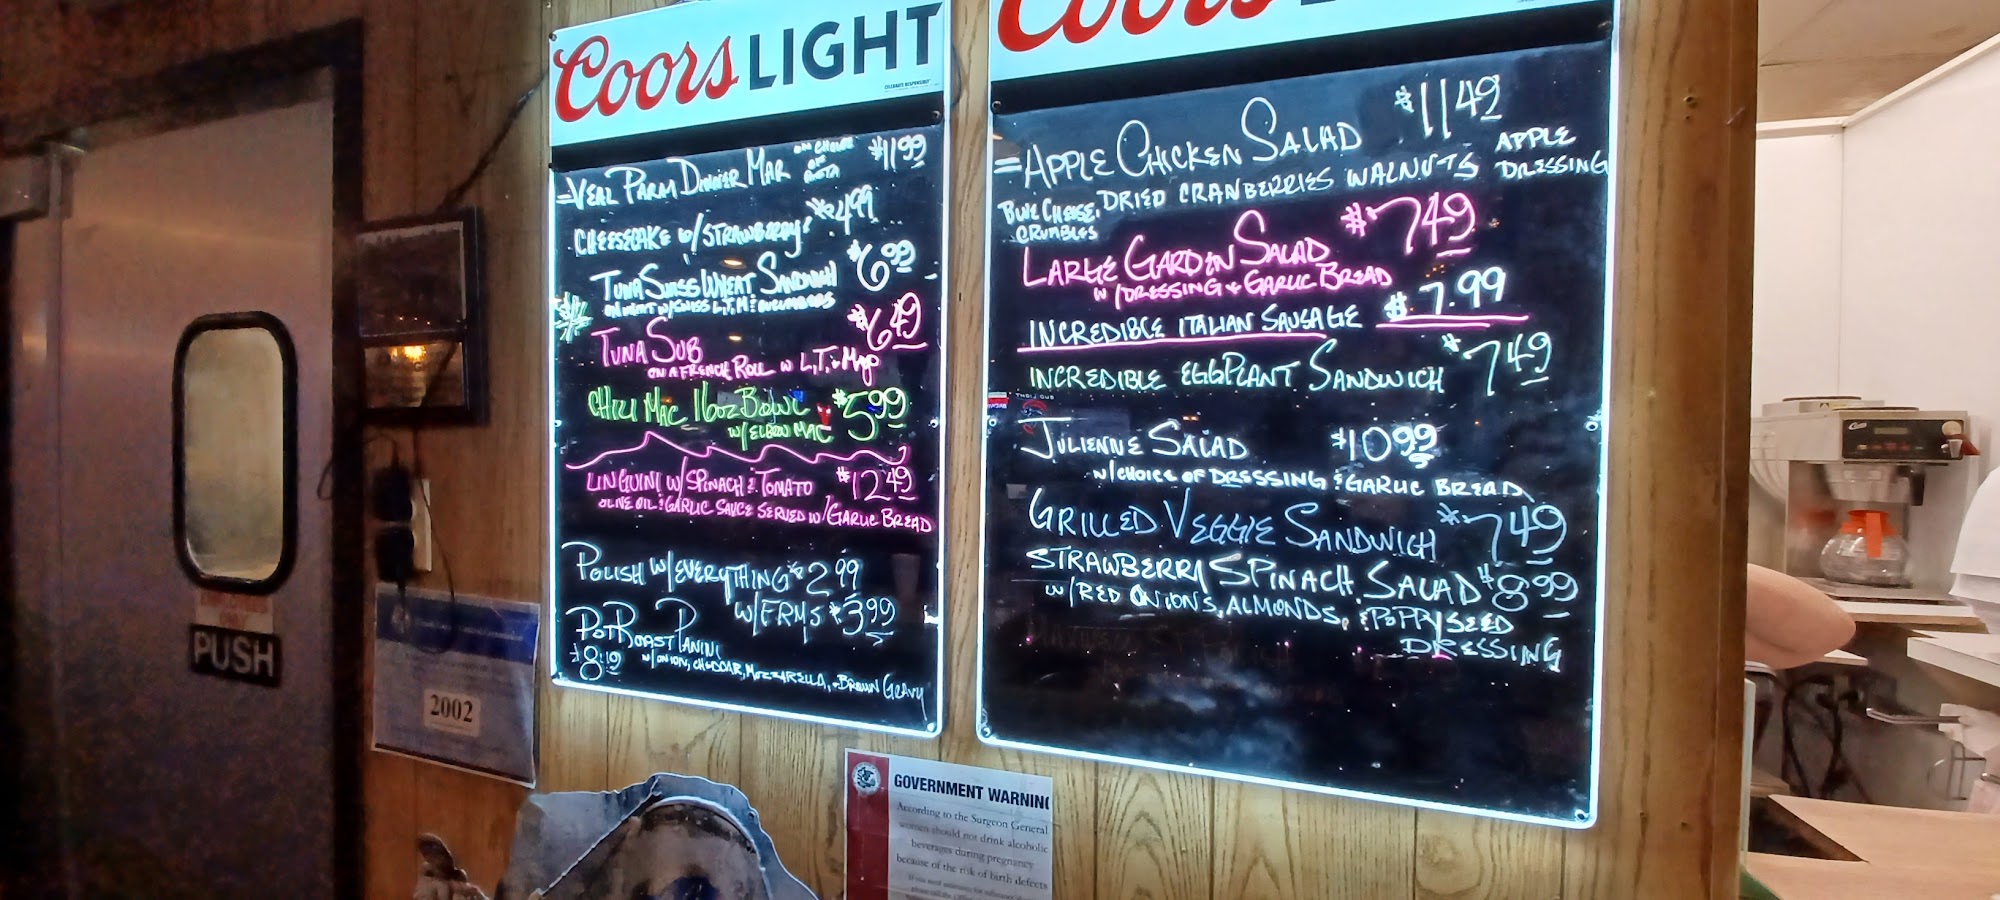 Coors LIGHT
CELEBRATE RESPONSIBLY
=VEAL PARM DINNER MAR $11.99
CHEESECAKE W/STRAWBERRY $4.99
TUNA SWISS WHEAT SANDWICH $6.99
TUNA SUB $6.49
ON A FRENCH ROLL W L,T,& Mayo
CHILI MAC 16oz BOWL $5.99
W/ ELBOW MAC
LINGUINI W/ SPINACH & TOMATO $12.49
OLIVE OIL & GARLIC SAUCE SERVED W/ GARLIC BREAD
POLISH W/ EVERYTHING $2.99
W/ FRYS $3.99
POT ROAST PANINI
$8.19 W/ ONION, CHEDDAR, MOZZARELLA, & BROWN GRAVY
Coors
=APPLE CHICKEN SALAD $11.49
BLUE CHEESE CRUMBLES, DRIED CRANBERRIES WALNUTS APPLE DRESSING
LARGE GARDEN SALAD $7.49
W/DRESSING & GARLIC BREAD
INCREDIBLE ITALIAN SAUSAGE $7.99
INCREDIBLE EGGPLANT SANDWICH $7.49
JULIENNE SALAD $10.99
W/CHOICE OF DRESSING & GARLIC BREAD
GRILLED VEGGIE SANDWICH $7.49
STRAWBERRY SPINACH SALAD $8.99
W/RED ONIONS, ALMONDS, & POPPYSEED
DRESSING
PUSH
2002
GOVERNMENT WARNING
According to the Surgeon General
women should not drink alcoholic
beverages during pregnancy
because of the risk of birth defects